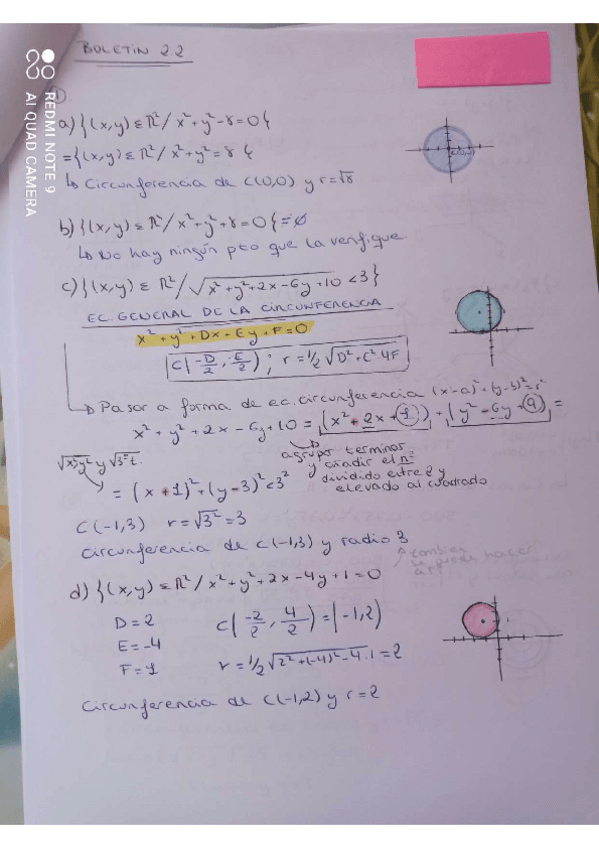 BOLETIN 2.2
1).
a) {(x,y) ∈ ℝ²/ x²+y²-8=0}
={(x,y) ∈ ℝ²/ x²+y²=8}
↳ Circunferencia de C(0,0) y r=√8
C(0,0)
b) {(x,y) ∈ ℝ²/ x²+y²+8=0}=∅
↳ No hay ningún pto que la verifique
c) {(x,y) ∈ ℝ²/ √x²+y²+2x-6y+10 <3}
EC. GENERAL DE LA CIRCUNFERENCIA
x²+y²+Dx+Ey+F=0
C(-D/2, -E/2); r=1/2 √D²+E²-4F
↳ Pasar a forma de ec. circunferencia (x-a)²+(y-b)²=r²
x²+y²+2x-6y+10=(x²+2x+1)+(y²-6y+9)=
agrupar terminos
y añadir el nº
dividido entre 2 y
elevado al cuadrado
=(x+1)²+(y-3)²<3²
C(-1,3) r=√3²=3
circunferencia de C(-1,3) y radio 3
d) {(x,y) ∈ ℝ²/ x²+y²+2x-4y+1=0
D=2
E=-4
F=1
C(-2/2, 4/2)=(-1,2)
r=1/2 √2²+(-4)²-4·1=2
Circunferencia de C(-1,2) y r=2
REDMI NOTE 9
AI QUAD CAMERA